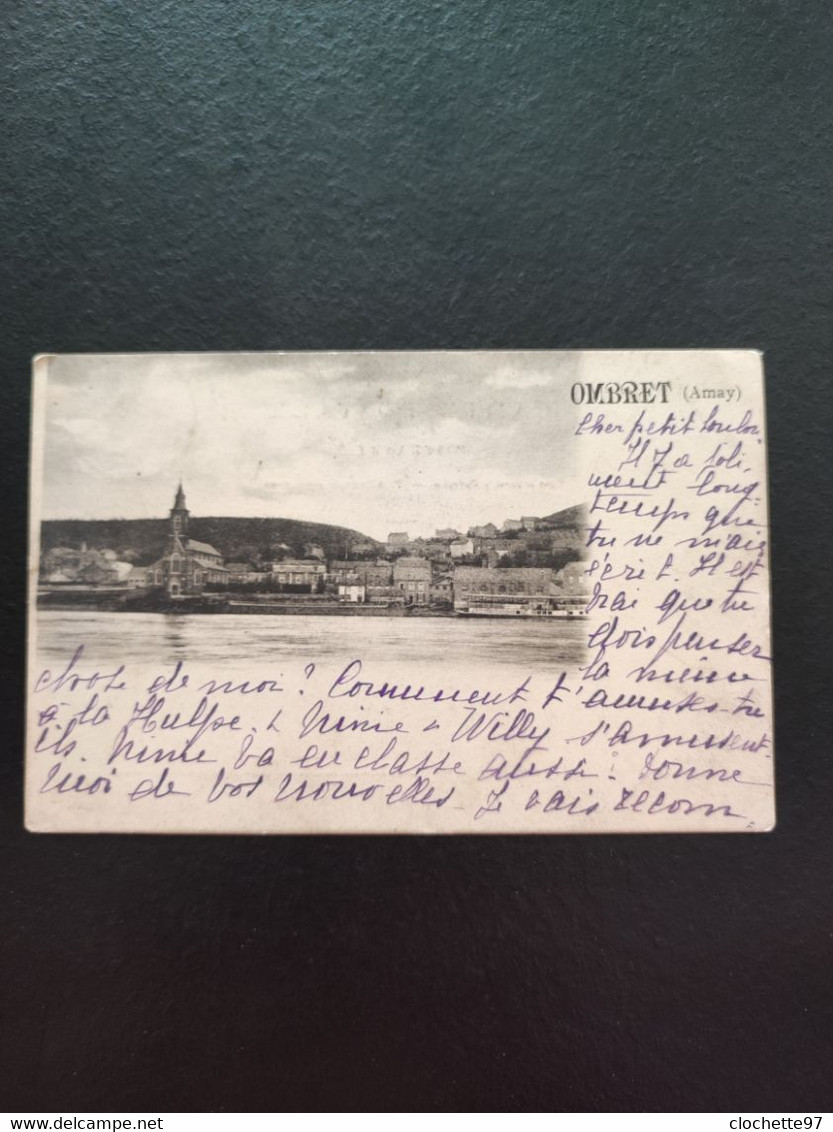 OMBRET (Amay)
Cher petit Loulou
Il y a joli-
ment long-
temps que
tu ne m'ais
écrit. Il est
vrai que tu
dois penser
la même
chose de moi? Comment t'amuses-tu
à la Hulpe. & Nime & Willy s'amusent-
ils. Nime va en classe aussi? Donne
moi de vos nouvelles. Je vais recom
delcampe.net
clochette97